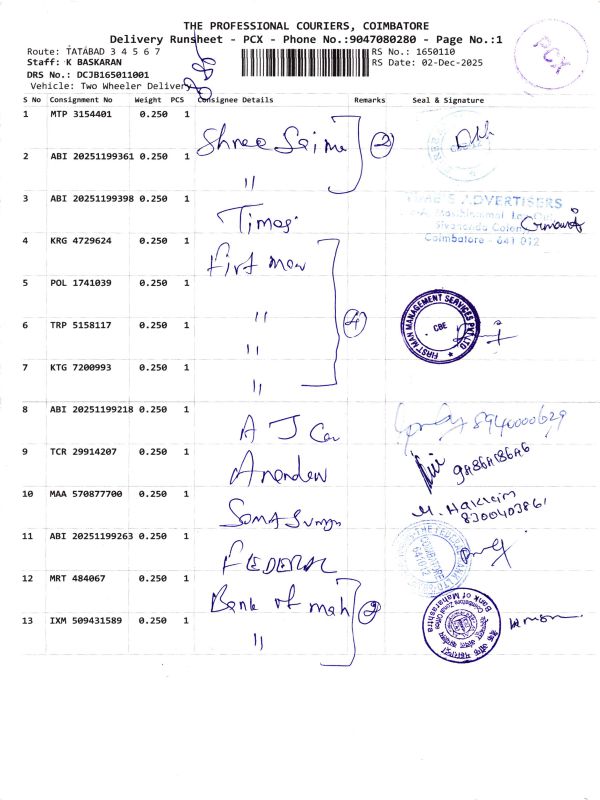 THE PROFESSIONAL COURIERS, COIMBATORE
Delivery Runsheet - PCX - Phone No.:9047080280 - Page No.:1
Route: TATABAD 3 4 5 6 7 RS No.: 1650110
Staff: K BASKARAN RS Date: 02-Dec-2025
DRS No.: DCJB165011001
Vehicle: Two Wheeler Delivery
PCX
S No Consignment No Weight PCS Consignee Details Remarks Seal & Signature
1 MTP 3154401 0.250 1 Shree 2
2 ABI 20251199361 0.250 1 "
3 ABI 20251199398 0.250 1 Times ADVERTISERS
Coimbatore - 641 012
4 KRG 4729624 0.250 1 First man
5 POL 1741039 0.250 1 "
6 TRP 5158117 0.250 1 " 4 FIRST MAN MANAGEMENT SERVICES PVT LTD CBE
7 KTG 7200993 0.250 1 "
8 ABI 20251199218 0.250 1 A J 8940000629
9 TCR 29914207 0.250 1
10 MAA 570877700 0.250 1 M. Hakkim
8300403861
11 ABI 20251199263 0.250 1 FEDERAL
12 MRT 484067 0.250 1 Bank of mah 2 Bank of Maharashtra
13 IXM 509431589 0.250 1 "